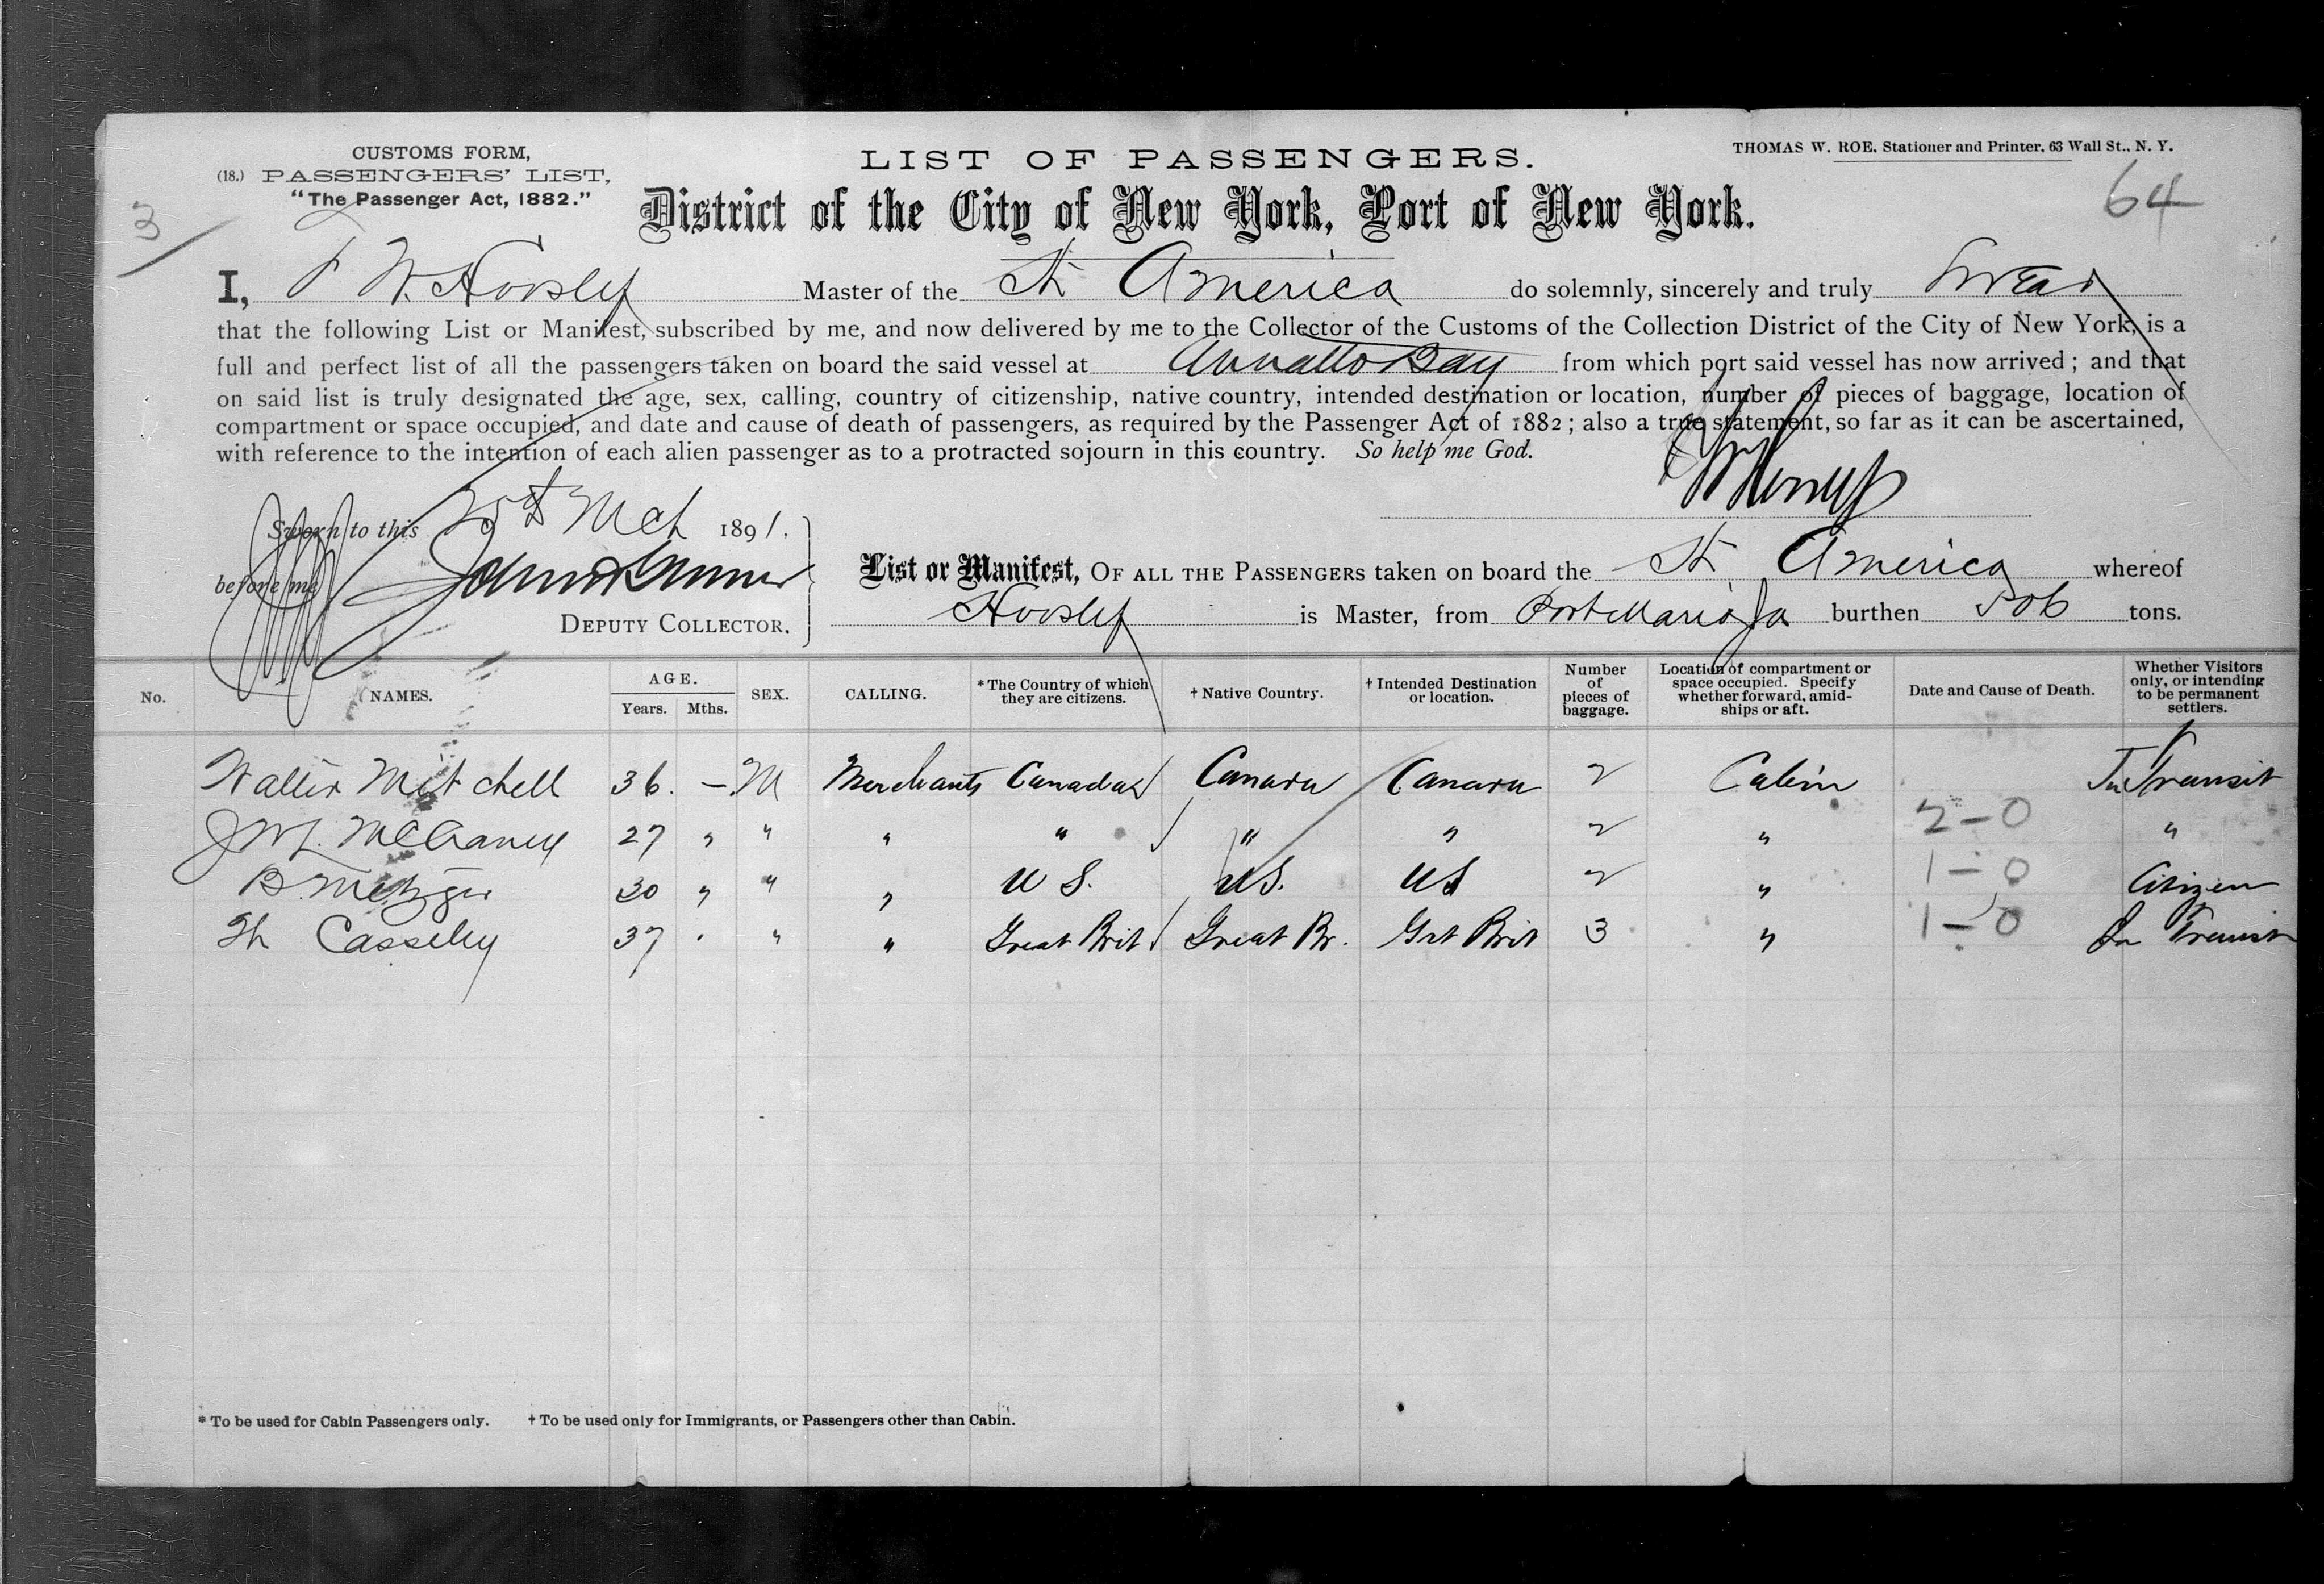 CUSTOMS FORM,
(18.) PASSENGERS' LIST,
"The Passenger Act, 1882."
LIST OF PASSENGERS.
THOMAS W. ROE, Stationer and Printer, 63 Wall St., N. Y.
3
64
District of the City of New York, Port of New York.
I, Master of the America do solemnly, sincerely and truly swear
that the following List or Manifest, subscribed by me, and now delivered by me to the Collector of the Customs of the Collection District of the City of New York, is a
full and perfect list of all the passengers taken on board the said vessel at Annatto Bay from which port said vessel has now arrived; and that
on said list is truly designated the age, sex, calling, country of citizenship, native country, intended destination or location, number of pieces of baggage, location of
compartment or space occupied, and date and cause of death of passengers, as required by the Passenger Act of 1882; also a true statement, so far as it can be ascertained,
with reference to the intention of each alien passenger as to a protracted sojourn in this country. So help me God.
Sworn to this 25th Mch 1891.
before me
DEPUTY COLLECTOR.
List or Manifest, OF ALL THE PASSENGERS taken on board the America whereof
is Master, from Port Maria Ja burthen 506 tons.
No. NAMES. AGE. Years. Mths. SEX. CALLING. *The Country of which they are citizens. †Native Country. †Intended Destination or location. Number of pieces of baggage. Location of compartment or space occupied. Specify whether forward, amidships or aft. Date and Cause of Death. Whether Visitors only, or intending to be permanent settlers.
Walter Mitchell 36. – M Merchants Canada Canada Canada 2 Cabin In Transit
27 " " " " " " 2 " 2–0 "
B. Metzger 30 " " " U S. U S. U S 2 " 1–0 Citizen
Casseley 37 " " " Great Brit Great Br. Grt Brit 3 " 1–0 In Transit
* To be used for Cabin Passengers only. † To be used only for Immigrants, or Passengers other than Cabin.